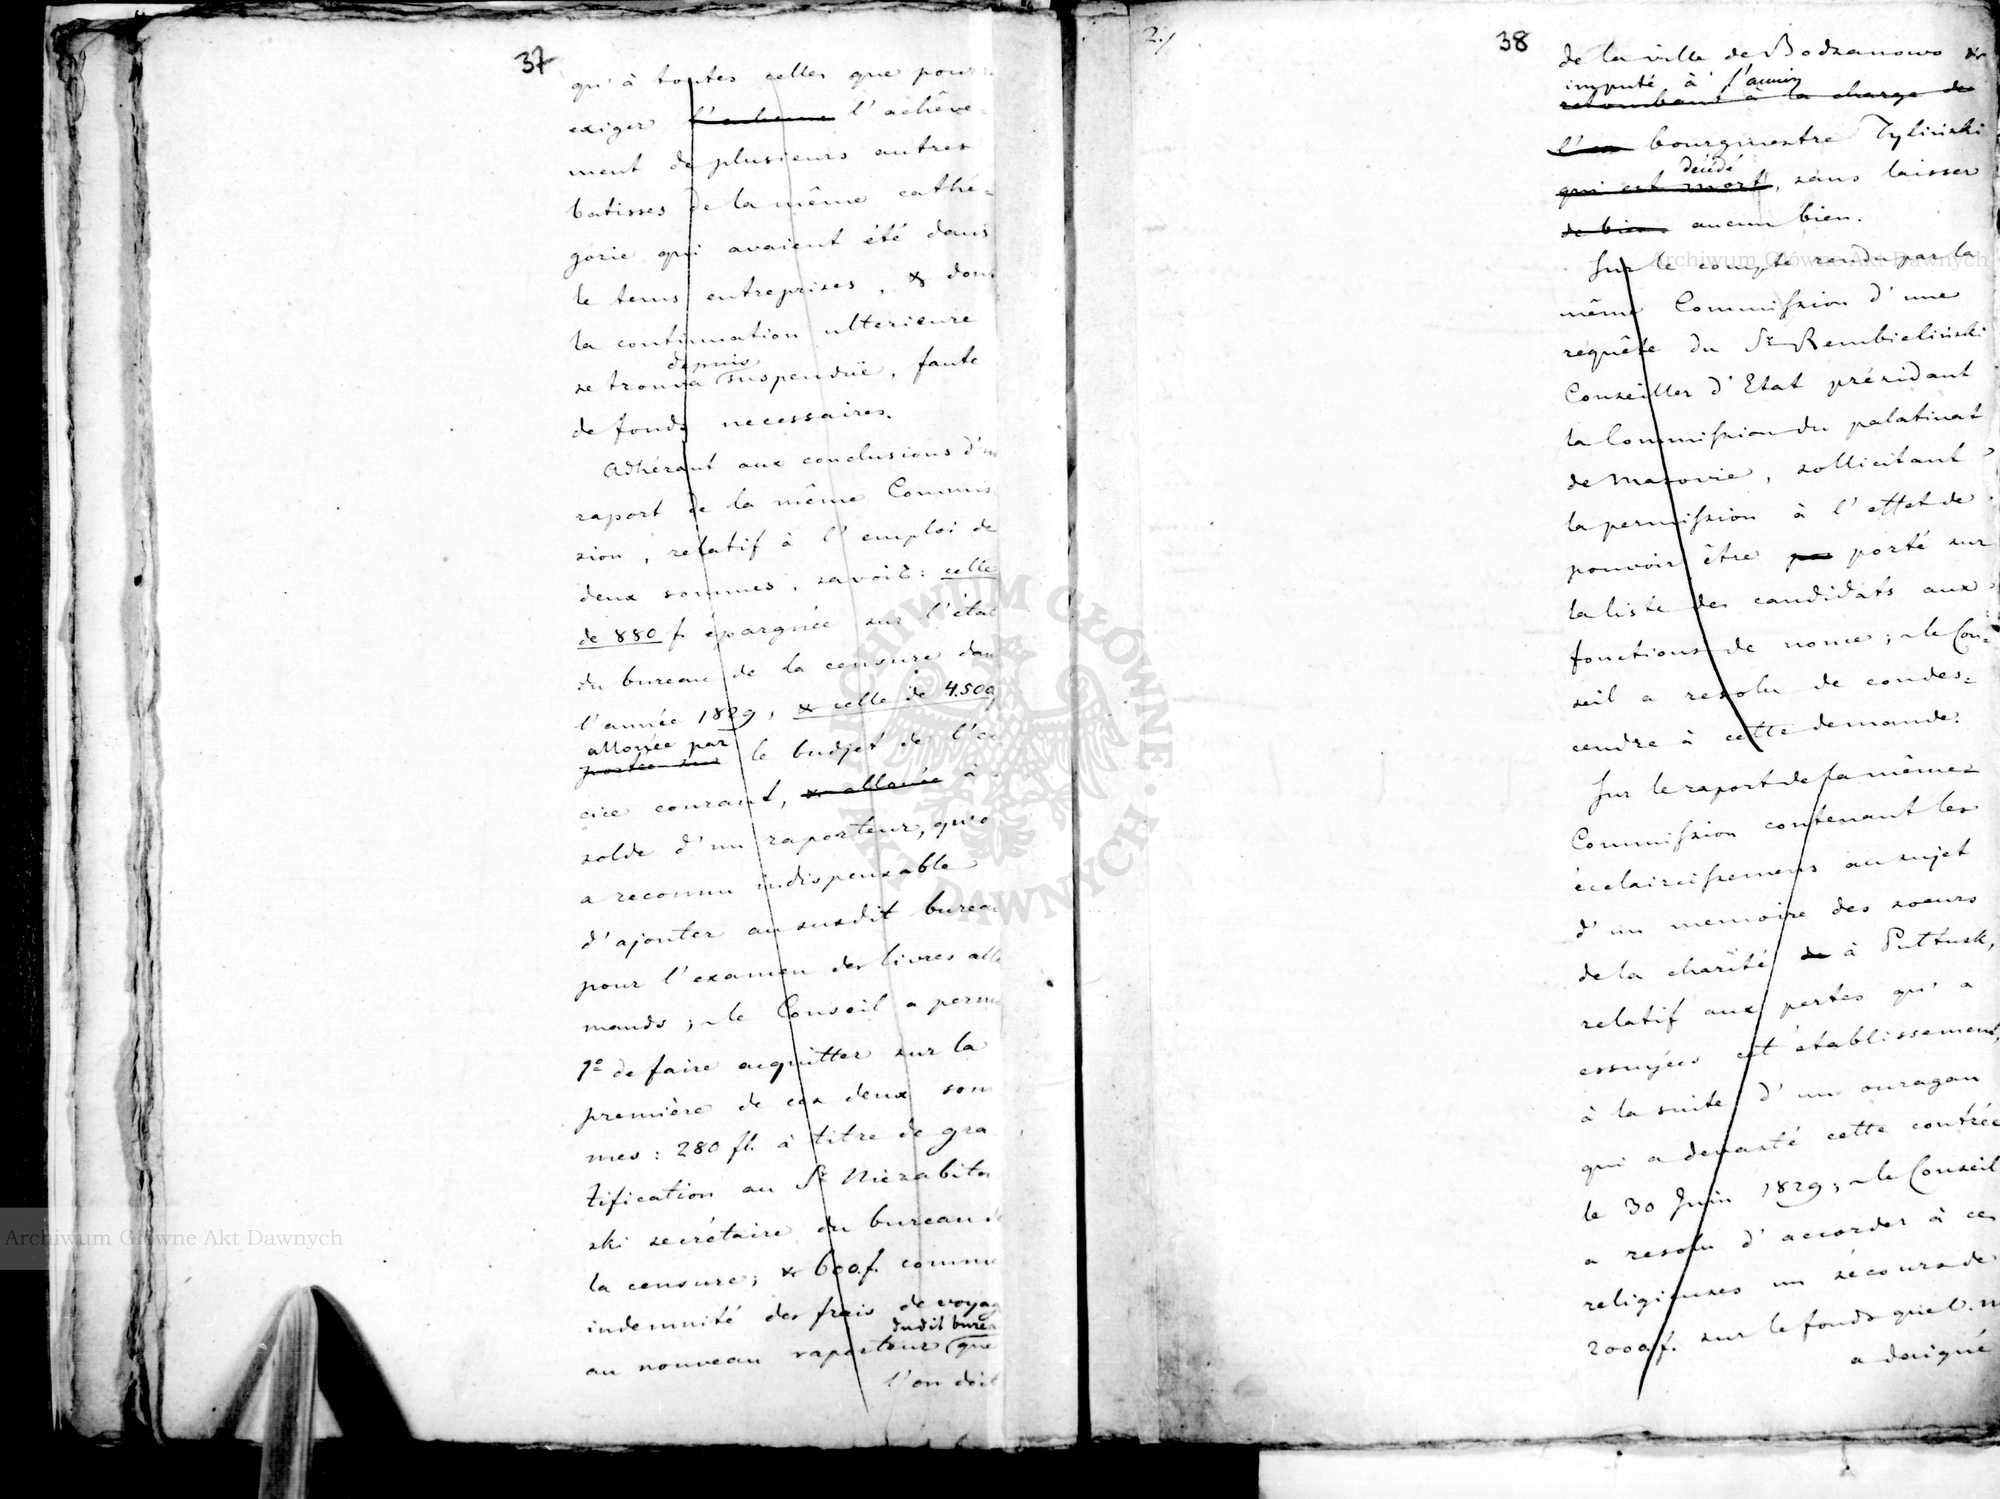 37
qu'à toutes celles que pourra
exiger l'achêve-
ment de plusieurs autres
batisses de la même cathé-
gorie qui avaient été dans
le tems entreprises, & dont
la continuation ulterieure
depuis
se trouva suspenduë, faute
de fonds necessaires.
Adhérant aux conclusions d'un
raport de la même Commis-
sion, relatif à l'emploi de
deux sommes, savoir: celle
de 880 f. épargnée sur l'état
du bureau de la censure dans
l'année 1829, & celle de 4.500
allouée par
portée sur le budjet de l'ex
cice courant, & allouée à
solde d'un raporteur, qu'o
a reconnu indispensable
d'ajouter au susdit bureau
pour l'examen des livres alle
mands; le Conseil a permis
1º de faire acquitter sur la
première de ces deux som
mes: 280 fl. à titre de gra
tification au Sr Niezabitow
ski secrétaire du bureau de
la censure; & 600 f. comme
indemnité des frais de voyag
dudit burea
au nouveau raporteur que
l'on doit
2./
38
de la ville de Bodzanowo &
imputé à l'ancien
retombant à la charge de
l'ex bourgmestre Tyliński
décédé
qui est mort, sans laisser
de bien aucun bien.
Sur le compte rendu par la
même Commission d'une
requête du Sr Rembieliński
Conseiller d'Etat présidant
la Commission du palatinat
de Masovie, sollicitant
la permission à l'effet de
pouvoir être porté sur
la liste des candidats aux
fonctions de nonce; le Con-
seil a resolu de condes-
cendre à cette demande.
Sur le raport de la même
Commission contenant les
éclaircissemens au sujet
d'un memoire des soeurs
de la charité de à Pultusk,
relatif aux pertes qu'a
essuyées cet établissement,
à la suite d'un ouragan
qui a devasté cette contrée
le 30 Juin 1829; le Conseil
a resolu d'accorder à ces
religieuses un sécours de
2000 f. sur le fonds que l. m
a daigné
Archiwum Główne Akt Dawnych
Archiwum Główne Akt Dawnych
ARCHIWUM GŁÓWNE AKT DAWNYCH